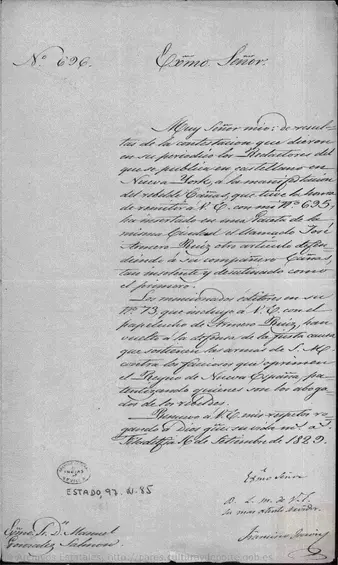 Nº 696.
Exmo Señor:
Muy Señor mio: de resul-
tas de la contestacion que dieron
en su periodico los Redactores del
que se publica en castellano en
Nueva York, a la manifestacion
del rebelde Cañas que tuve la honra
de remitir a V. E. con mi nº 695,
ha insertado en una Gaceta de la
misma Ciudad el llamado José
Armero Ruiz otro articulo defen-
diendo á su compañero Cañas,
tan insolente y desatinado como
el primero.
Los mencionados editores en su
nº 73, que incluyo a V. E. con el
papelucho de Armero Ruiz, han
vuelto a la defensa de la justa causa
que sostienen las armas de S. M.
contra los facciosos que oprimen el
Reyno de Nueva España, pa-
tentizando quienes son los aboga-
dos de los rebeldes.
Renuevo á V. E. mis respetos ro-
gando á Dios gue su vida ms as
Filadelfia 16 de Setiembre de 1829.
Exmo Señor
B. L. M. de V. E.
su mas atento servidor
Francisco
ESTADO, 97. N. 85
Exmo Sr. Dn. Manuel
Gonzalez Salmon